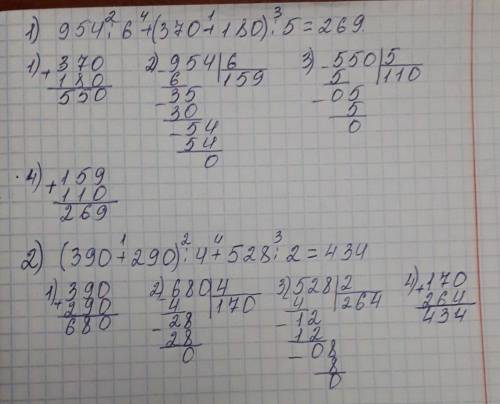 1) 954 : 6 + (370 + 180) : 5 = 269.
2 4 1 3
1) + 370 2) - 954 | 6 3) - 550 | 5
180 6 159 5 110
550 - 35 - 05
30 5
- 54 0
54
0
4) + 159
110
269
2) (390 + 290) : 4 + 528 : 2 = 434
1 2 4 3
1) + 390 2) - 680 | 4 3) - 528 | 2 4) + 170
290 4 170 4 264 264
680 - 28 - 12 434
28 12
0 - 08
8
0